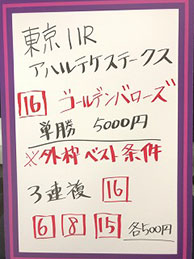 東京11R
アハルテケステークス
16 ゴールデンバローズ
単勝 5000円
※外枠ベスト条件
3連複 16
6 8 15 各500円